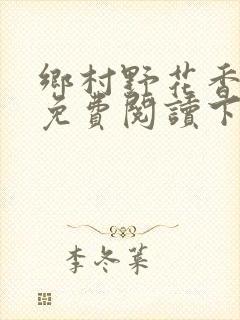 鄉村野花香
免費閱讀下
李冬菜